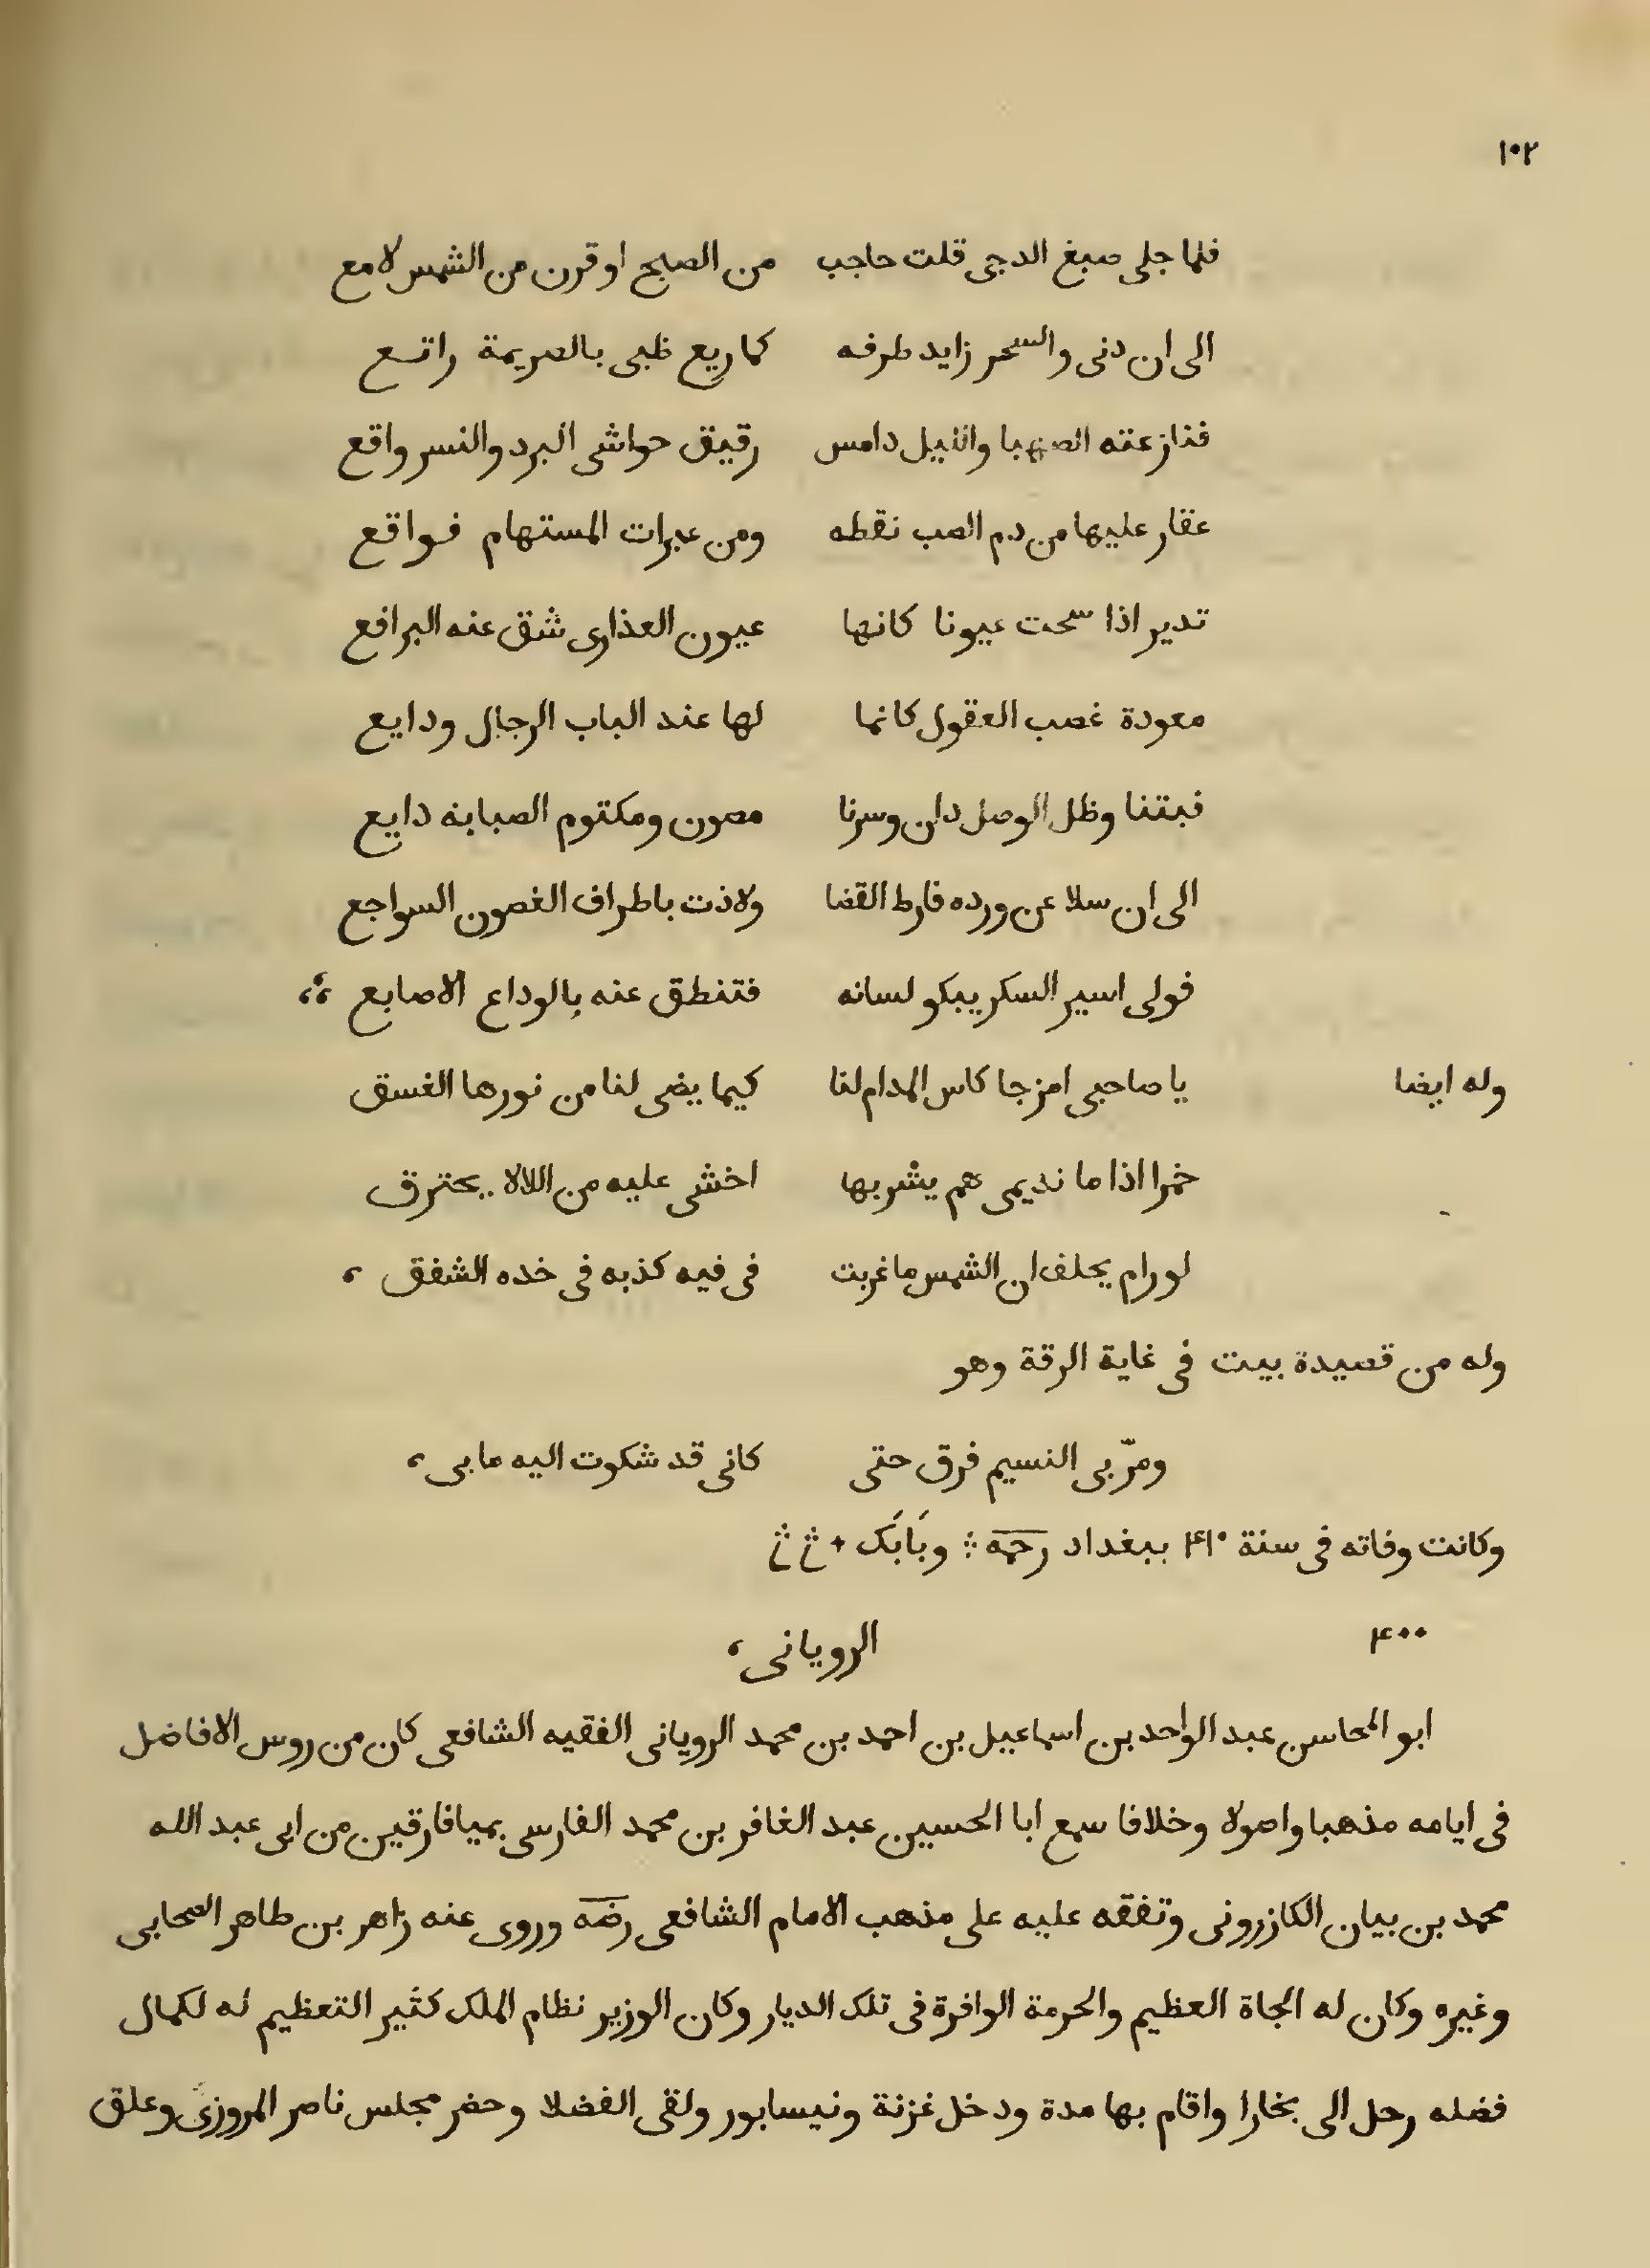 ١٠٢
فلما جلى صبغ الدجى قلت حاجب من الصبح او قرن من الشمس لامع
الى ان دنى والسحر زايد طرفه كما ريع ظبى بالصريمة راتع
فنازعته الصهبا والليل دامس رقيق حواشى البرد والنسر واقع
عقار عليها من دم الصب نقطه ومن عبرات المستهام فواقع
تدير اذا سحت عيونا كانها عيون العذارى شق عنه البراقع
معودة غصب العقول كانما لها عند الباب الرجال ودايع
فبتنا وظل الوصل دان وسرنا مصون ومكتوم الصبابه دايع
الى ان سلا عن ورده فارط القضا ولاذت باطراف الغصون السواجع
فولى اسير السكر يبكو لسانه فتنطق عنه بالوداع الاصابع
وله ايضا يا صاحبى امزجا كاس المدام لنا كيما يضى لنا من نورها الغسق
خمرا اذا ما نديمى هم يشربها اخشى عليه من اللالا يحترق
لو رام يحلف ان الشمس ما غربت فى فيه كذبه فى خده الشفق ،
وله من قصيدة بيت فى غاية الرقة وهو
ومرّ بى النسيم فرق حتى كانى قد شكوت اليه ما بى ،
وكانت وفاته فى سنة ۴١٠ ببغداد رحمه وبَابَك
۴٠٠ الرويانى ،
ابو المحاسن عبد الواحد بن اسماعيل بن احمد بن محمد الرويانى الفقيه الشافعى كان من روس الافاضل
فى ايامه مذهبا واصولا وخلافا سمع ابا الحسين عبد الغافر بن محمد الفارسى بميافارقين من ابى عبد الله
محمد بن بيان الكازرونى وتفقه عليه على مذهب الامام الشافعى رضه وروى عنه زاهر بن طاهر الصحابى
وغيره وكان له الجاة العظيم والحرمة الوافرة فى تلك الديار وكان الوزير نظام الملك كثير التعظيم له لكمال
فضله رحل الى بخارا واقام بها مدة ودخل غزنة ونيسابور ولقى الفضلا وحضر مجلس ناصر المروزى وعلق